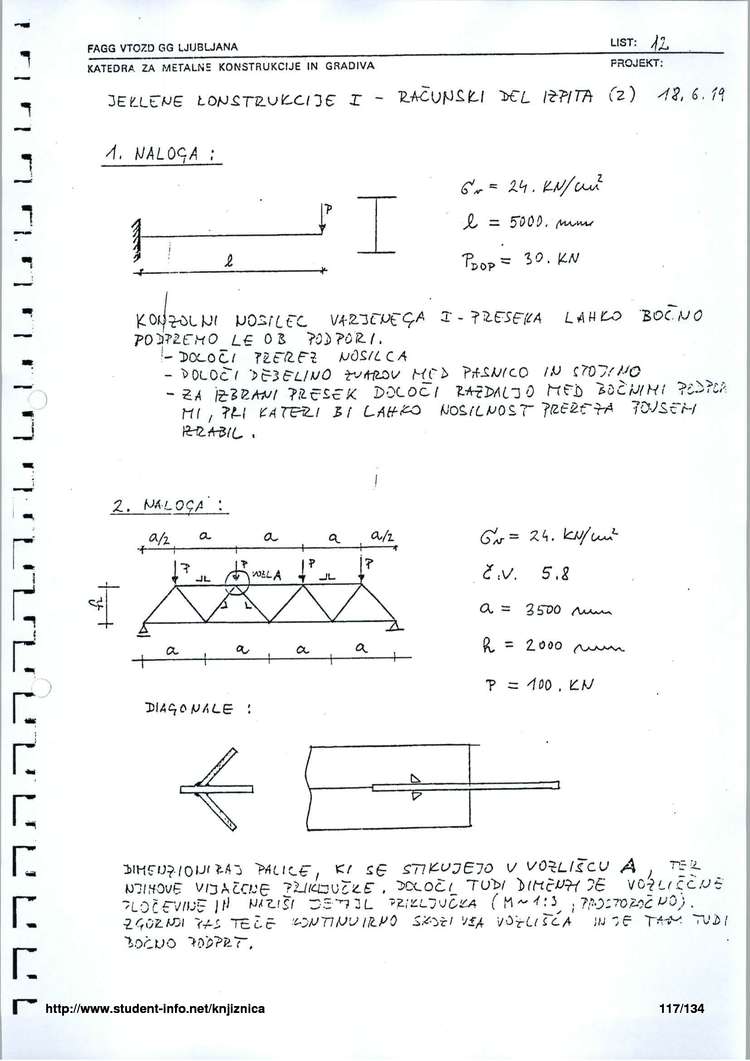 FAGG VTOZD GG LJUBLJANA
LIST: 12
KATEDRA ZA METALNE KONSTRUKCIJE IN GRADIVA
PROJEKT:
JEKLENE KONSTRUKCIJE I - RAČUNSKI DEL IZPITA (2) 18.6.19
1. NALOGA :
P
l
σv = 24. KN/cm²
l = 5000. mm
PDOP = 30. KN
KONZOLNI NOSILEC VARJENEGA I-PRESEKA LAHKO BOČNO
PODPREMO LE OB PODPORI.
- DOLOČI PREREZ NOSILCA
- DOLOČI DEBELINO ZVAROV MED PASNICO IN STOJINO
- ZA IZBRANI PRESEK DOLOČI RAZDALJO MED BOČNIMI PODPORA
MI, PRI KATERI BI LAHKO NOSILNOST PREREZA POVSEM
IZRABIL.
2. NALOGA :
a/2 a a a a/2
P P P P
VOZL A
h
a a a a
σv = 24. KN/cm²
Č.V. 5.8
a = 3500 mm
h = 2000 mm
P = 100. KN
DIAGONALE :
DIMENZIONIRAJ PALICE, KI SE STIKUJEJO V VOZLIŠČU A, TER
NJIHOVE VIJAČENE PRIKLJUČKE. DOLOČI TUDI DIMENZIJE VOZLIŠČNE
PLOČEVINE IN NARIŠI DETAJL PRIKLJUČKA (M~1:3, PROSTOROČNO).
ZGORNJI PAS TEČE KONTINUIRNO SKOZI VSA VOZLIŠČA IN JE TAM TUDI
BOČNO PODPRT.
http://www.student-info.net/knjiznica
117/134